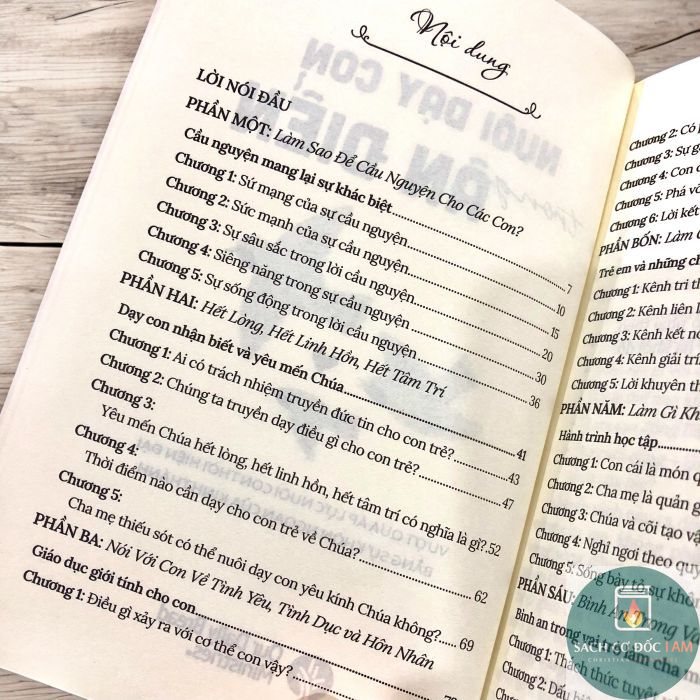 Nội dung
LỜI NÓI ĐẦU
PHẦN MỘT: Làm Sao Để Cầu Nguyện Cho Các Con?
Cầu nguyện mang lại sự khác biệt
Chương 1: Sứ mạng của sự cầu nguyện 7
Chương 2: Sức mạnh của sự cầu nguyện 10
Chương 3: Sự sâu sắc trong lời cầu nguyện 15
Chương 4: Siêng năng trong sự cầu nguyện 20
Chương 5: Sự sống động trong lời cầu nguyện 30
PHẦN HAI: Hết Lòng, Hết Linh Hồn, Hết Tâm Trí 36
Dạy con nhận biết và yêu mến Chúa
Chương 1: Ai có trách nhiệm truyền đức tin cho con trẻ? 41
Chương 2: Chúng ta truyền dạy điều gì cho con trẻ? 43
Chương 3: 47
Yêu mến Chúa hết lòng, hết linh hồn, hết tâm trí có nghĩa là gì? 52
Chương 4:
Thời điểm nào cần dạy cho con trẻ về Chúa?
Chương 5: 62
Cha mẹ thiếu sót có thể nuôi dạy con yêu kính Chúa không? 69
PHẦN BA: Nói Với Con Về Tình Yêu, Tình Dục và Hôn Nhân
Giáo dục giới tính cho con
Chương 1: Điều gì xảy ra với cơ thể con vậy?
Chương 2: Có
Chương 3: Sự
Chương 4: Con
Chương 5: Phá vỡ
Chương 6: Lời kết
PHẦN BỐN: Làm
Trẻ em và những
Chương 1: Kênh tri
Chương 2: Kênh liên
Chương 3: Kênh kết
Chương 4: Kênh giải trí
Chương 5: Lời khuyên
PHẦN NĂM: Làm Gì
Hành trình học tập
Chương 1: Con cái là món
Chương 2: Cha mẹ là quản
Chương 3: Chúa và cõi tạo
Chương 4: Nghỉ ngơi theo
Chương 5: Sống bày tỏ sự
PHẦN SÁU: Bình An Trong
Bình an trong vai trò làm cha
Chương 1: Thách thức
Chương 2:
SÁCH CƠ ĐỐC I AM